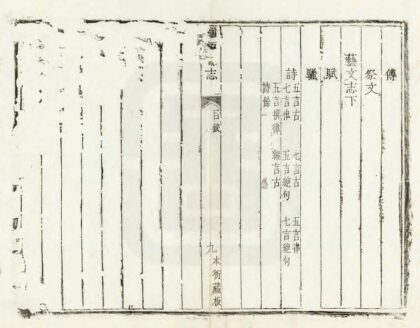 傳
祭文
藝文志下
賦
騷
詩
五言古 七言古 五言律
七言律 五言絕句 七言絕句
五言排律 雜言古
詩餘
志
目錄
九
本衙藏板